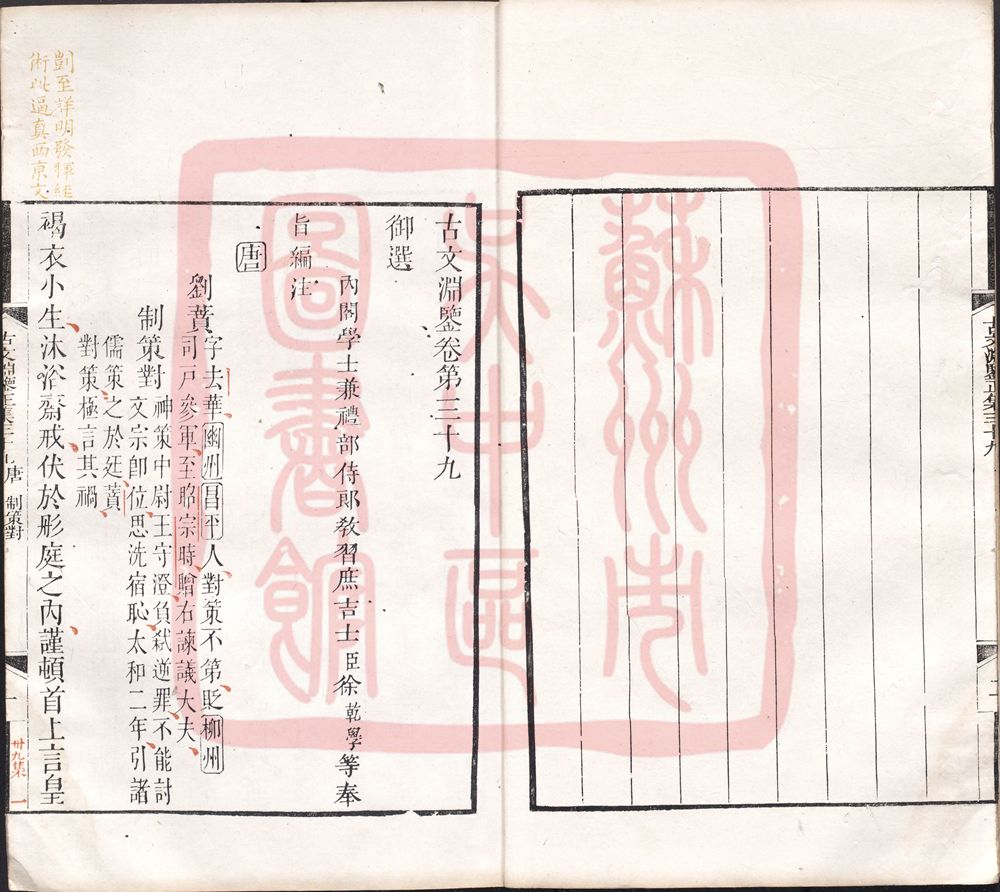 蘇州市
吳中區
圖書館
古文淵鑒正集三十九
二
古文淵鑒卷第三十九
御選
內閣學士兼禮部侍郎教習庶吉士臣徐乾學等奉
旨編注
唐
劉蕡字去華幽州昌平人對策不第貶柳州
司戶參軍至昭宗時贈右諫議大夫
制策對神策中尉王守澄負弒逆罪不能討
文宗卽位思洗宿恥太和二年引諸
儒策之於廷蕡
對策極言其禍
褐衣小生沐浴齋戒伏於形庭之內謹頓首上言皇
剴至詳明發揮經
術此逼真西京文
古文淵鑒正集三十九 唐 制策對
一
卅九集 一